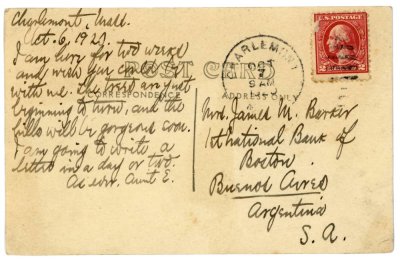 Charlemont, Mass.
Oct. 6, 1927.
I am here for two weeks
and wish you could be
with me. The trees are just
beginning to turn, and the
hills will be gorgeous soon.
I am going to write a
letter in a day or two.
As ever, Aunt E.
POST CARD
CORRESPONDENCE
ADDRESS ONLY
CHARLEMONT
OCT
7
U.S. POSTAGE
Mrs. James M. Barker
1st National Bank of
Boston
Buenos Aires
Argentina
S. A.